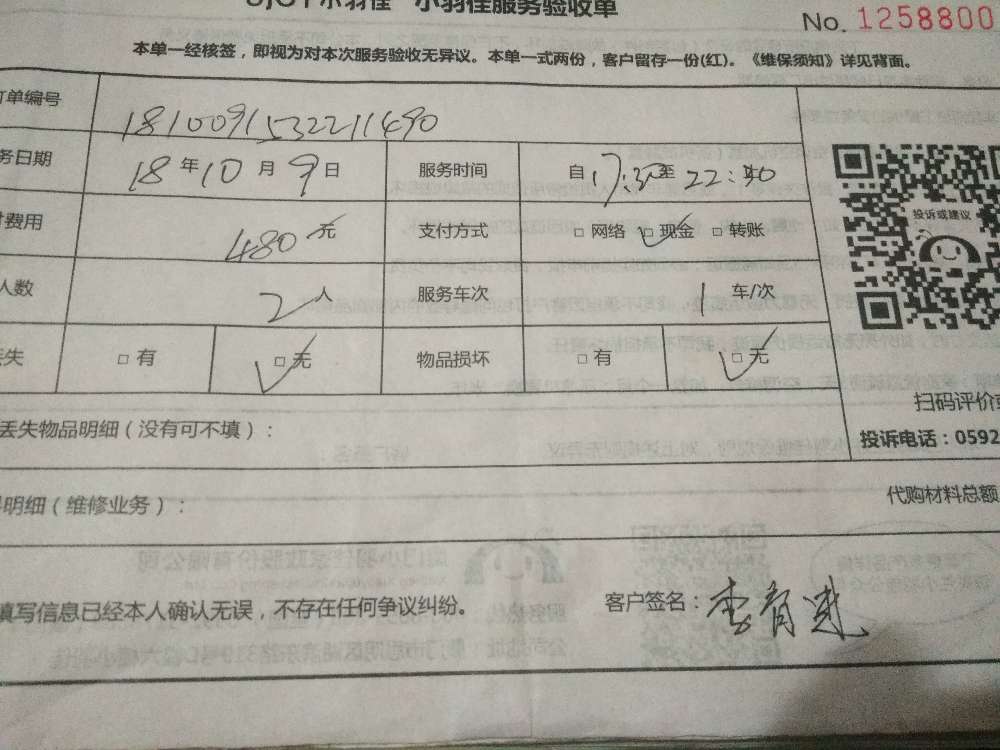 小羽佳服务验收单
No. 1258800
本单一经核签，即视为对本次服务验收无异议。本单一式两份，客户留存一份(红)。《维保须知》详见背面。
订单编号 1810091532211490
务日期 18 年 10 月 9 日 服务时间 自 17:30 至 22:40
费用 480 元 支付方式 □ 网络 □ 现金 □ 转账
人数 2 人 服务车次 1 车/次
丢失 □ 有 □ 无 物品损坏 □ 有 □ 无
投诉或建议
扫码评价或
丢失物品明细（没有可不填）：
投诉电话：0592
明细（维修业务）：
代购材料总额
填写信息已经本人确认无误，不存在任何争议纠纷。
客户签名：李育